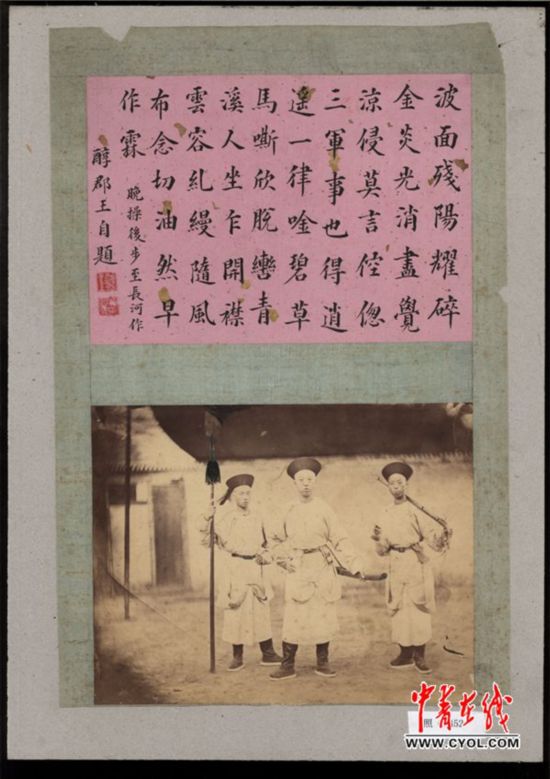 波面殘陽耀碎
金炎光消盡覺
涼侵莫言倥傯
三軍事也得逍
遙一律唫碧草
馬嘶欣脫轡青
溪人坐乍開襟
雲容糺縵隨風
布念切油然早
作霖
晚操後步至長河作
醇郡王自題
照
中青在线
WWW.CYOL.COM